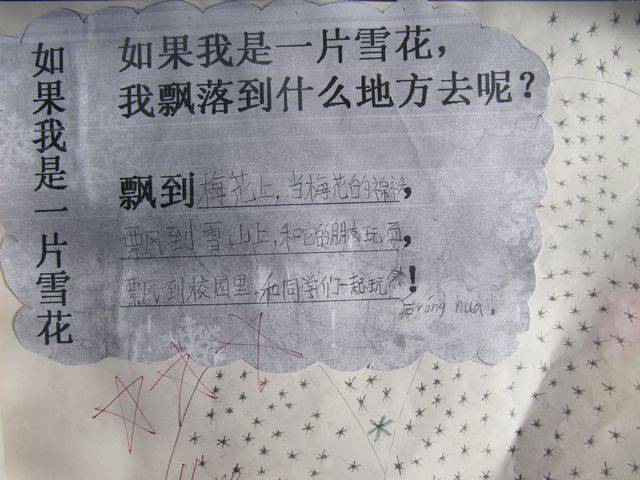 如果我是一片雪花
如果我是一片雪花，
我飘落到什么地方去呢？
飘到梅花上，当梅花的棉衤，
飘到雪山上，和它的朋友玩耍，
飘到校园里，和同学们一起玩，然！
后róng huà！